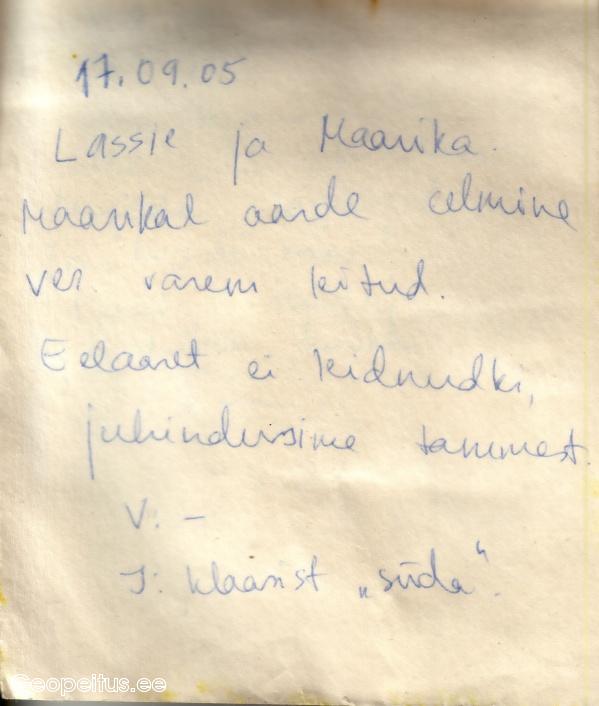 17.09.05
Lassie ja Maarika.
Maarikal aarde eelmine
ver. varem leitud.
Eelaaret ei leidnudki,
juhindusime tammest.
V: –
J: klaasist „süda“.
Geopeitus.ee